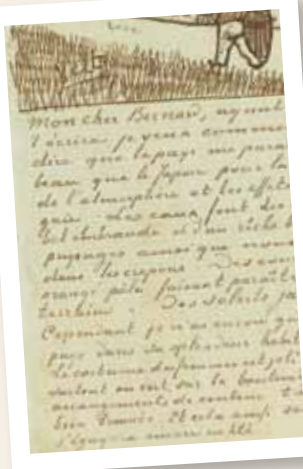 Mon cher Bernard, ayant
t'écrire je veux commen
dire que le pays me para
beau que le Japon pour la
de l'atmosphère et les effets
gaie. Les eaux font des
bel émeraude et d'un riche b
paysages ainsi que nous
dans les crepons. Des couc
orangé pâle faisant paraître
terrains. Des soleils ja
Cependant je n'ai encore gu
pays dans sa splendeur habit
Le costume des femmes est joli
surtout on voit sur le boulev
arrangements de couleur t
bien trouvés. Et cela aussi sa
s'égayera encore en été.